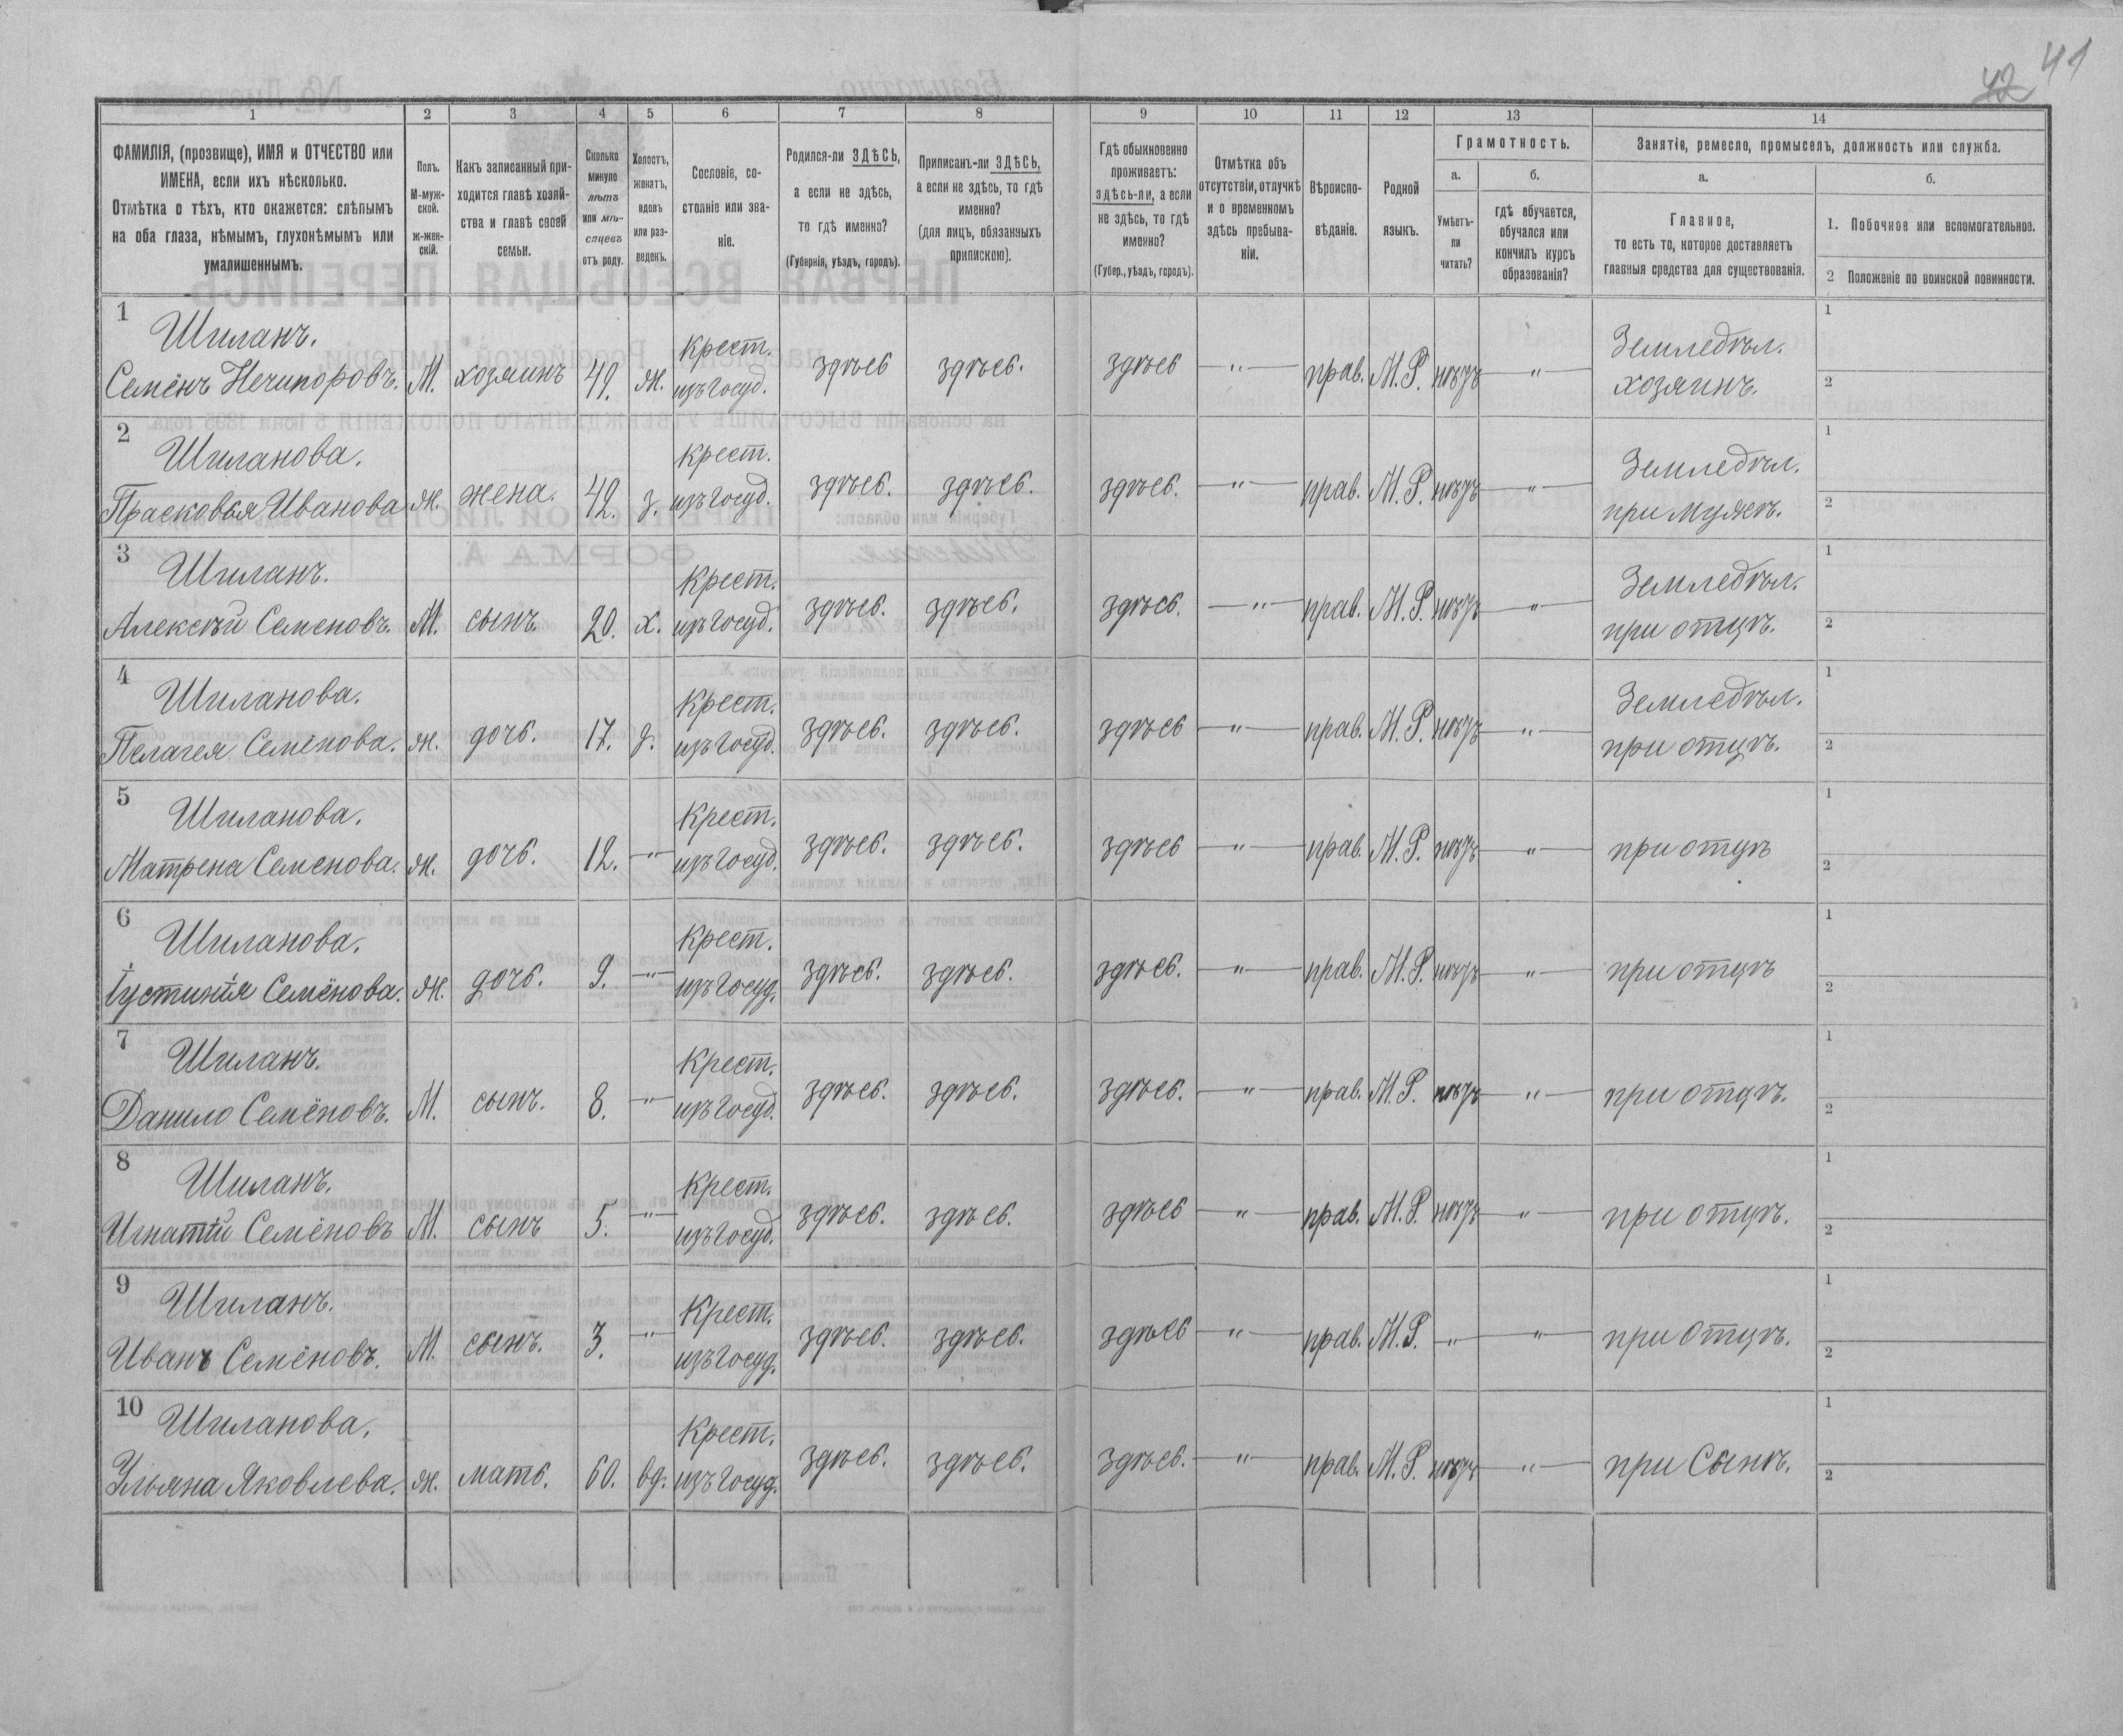 42 41
1 2 3 4 5 6 7 8 9 10 11 12 13 14
ФАМИЛІЯ, (прозвище), ИМЯ и ОТЧЕСТВО или
ИМЕНА, если ихъ нѣсколько.
Отмѣтка о тѣхъ, кто окажется: слѣпымъ
на оба глаза, нѣмымъ, глухонѣмымъ или
умалишеннымъ.
Полъ.
М-муж-
ской.
ж-жен-
скій.
Какъ записанный при-
ходится главѣ хозяй-
ства и главѣ своей
семьи.
Сколько
минуло
лѣтъ
или мѣ-
сяцевъ
отъ роду.
Холостъ,
женатъ,
вдовъ
или раз-
веденъ.
Сословіе, со-
стояніе или зва-
ніе.
Родился-ли ЗДѢСЬ,
а если не здѣсь,
то гдѣ именно?
(Губернія, уѣздъ, городъ).
Приписанъ-ли ЗДѢСЬ,
а если не здѣсь, то гдѣ
именно?
(для лицъ, обязанныхъ
припискою).
Гдѣ обыкновенно
проживаетъ:
здѣсь-ли, а если
не здѣсь, то гдѣ
именно?
(Губер., уѣздъ, городъ).
Отмѣтка объ
отсутствіи, отлучкѣ
и о временномъ
здѣсь пребыва-
ніи.
Вѣроиспо-
вѣданіе.
Родной
языкъ.
Грамотность.
а.
Умѣетъ-
ли
читать?
б.
гдѣ обучается,
обучался или
кончилъ курсъ
образованія?
Занятіе, ремесло, промыселъ, должность или служба.
а.
Главное,
то есть то, которое доставляетъ
главныя средства для существованія.
б.
1. Побочное или вспомогательное.
2 Положеніе по воинской повинности.
1 Шиланъ. Крест. Земледѣл. 1
Семёнъ Нечипоровъ. М. хозяинъ 49. ж. изъ Госуд. здѣсь здѣсь. здѣсь " прав. М.Р. нѣтъ " хозяинъ. 2
2 Шиланова. Крест. Земледѣл. 1
Прасковья Иванова ж. жена. 42. з. изъ Госуд. здѣсь. здѣсь. здѣсь. " прав. М.Р. нѣтъ " при мужѣ. 2
3 Шиланъ. Крест. Земледѣл. 1
Алексѣй Семеновъ. М. сынъ 20. х. изъ Госуд. здѣсь. здѣсь. здѣсь. " прав. М.Р. нѣтъ " при отцѣ. 2
4 Шиланова. Крест. Земледѣл. 1
Пелагея Семёнова. ж. дочь. 17. д. изъ Госуд. здѣсь. здѣсь. здѣсь " прав. М.Р. нѣтъ " при отцѣ. 2
5 Шиланова. Крест. 1
Матрена Семенова. ж. дочь. 12. " изъ Госуд. здѣсь. здѣсь. здѣсь " прав. М.Р. нѣтъ " при отцѣ 2
6 Шиланова. Крест. 1
Іустинія Семёнова. ж. дочь. 9. " изъ Госуд. здѣсь. здѣсь. здѣсь. " прав. М.Р. нѣтъ " при отцѣ 2
7 Шиланъ. Крест. 1
Данило Семёновъ. М. сынъ. 8. " изъ Госуд. здѣсь. здѣсь. здѣсь. " прав. М.Р. нѣтъ " при отцѣ. 2
8 Шиланъ. Крест. 1
Игнатій Семёновъ М. сынъ 5. " изъ Госуд. здѣсь. здѣсь. здѣсь " прав. М.Р. нѣтъ " при отцѣ. 2
9 Шиланъ. Крест. 1
Иванъ Семёновъ. М. сынъ. 3. " изъ Госуд. здѣсь. здѣсь. здѣсь " прав. М.Р. " " при отцѣ. 2
10 Шиланова. Крест. 1
Ульяна Яковлева. ж. мать. 60. вд. изъ Госуд. здѣсь. здѣсь. здѣсь. " прав. М.Р. нѣтъ " при Сынѣ. 2